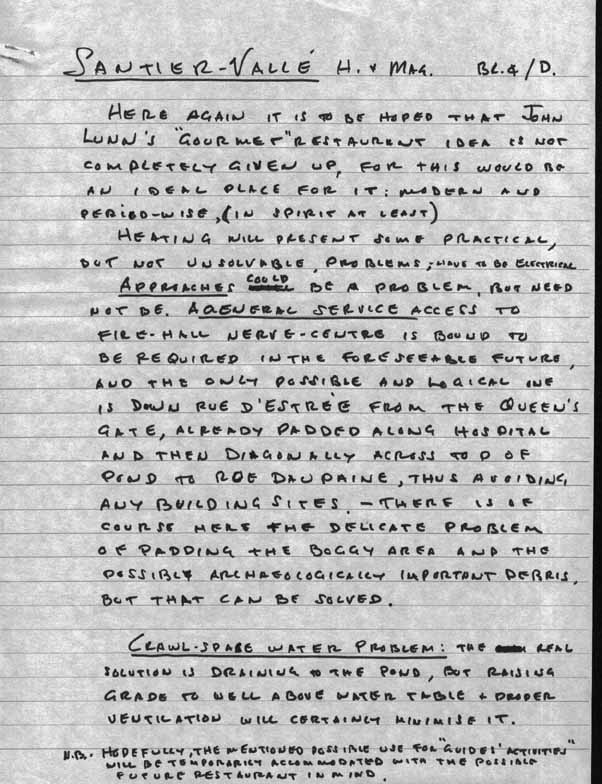 SANTIER-VALLÉ H. & MAG. BL.4/D.
HERE AGAIN IT IS TO BE HOPED THAT JOHN
LUNN'S "GOURMET" RESTAURENT IDEA IS NOT
COMPLETELY GIVEN UP, FOR THIS WOULD BE
AN IDEAL PLACE FOR IT: MODERN AND
PERIOD-WISE, (IN SPIRIT AT LEAST)
HEATING WILL PRESENT SOME PRACTICAL,
BUT NOT UNSOLVABLE, PROBLEMS; HAVE TO BE ELECTRICAL
APPROACHES COULD BE A PROBLEM, BUT NEED
NOT BE. A GENERAL SERVICE ACCESS TO
FIRE-HALL NERVE-CENTRE IS BOUND TO
BE REQUIRED IN THE FORESEEABLE FUTURE,
AND THE ONLY POSSIBLE AND LOGICAL ONE
IS DOWN RUE D'ESTRÉE FROM THE QUEEN'S
GATE, ALREADY PADDED ALONG HOSPITAL
AND THEN DIAGONALLY ACROSS TOP OF
POND TO RUE DAUPHINE, THUS AVOIDING
ANY BUILDING SITES. – THERE IS OF
COURSE HERE THE DELICATE PROBLEM
OF PADDING THE BOGGY AREA AND THE
POSSIBLY ARCHAEOLOGICALLY IMPORTANT DEBRIS,
BUT THAT CAN BE SOLVED.
CRAWL-SPACE WATER PROBLEM: THE REAL
SOLUTION IS DRAINING TO THE POND, BUT RAISING
GRADE TO WELL ABOVE WATER TABLE + PROPER
VENTILATION WILL CERTAINLY MINIMISE IT.
N.B. HOPEFULLY, THE MENTIONED POSSIBLE USE FOR "GUIDES' ACTIVITIES"
WILL BE TEMPORARILY ACCOMMODATED WITH THE POSSIBLE
FUTURE RESTAURANT IN MIND.